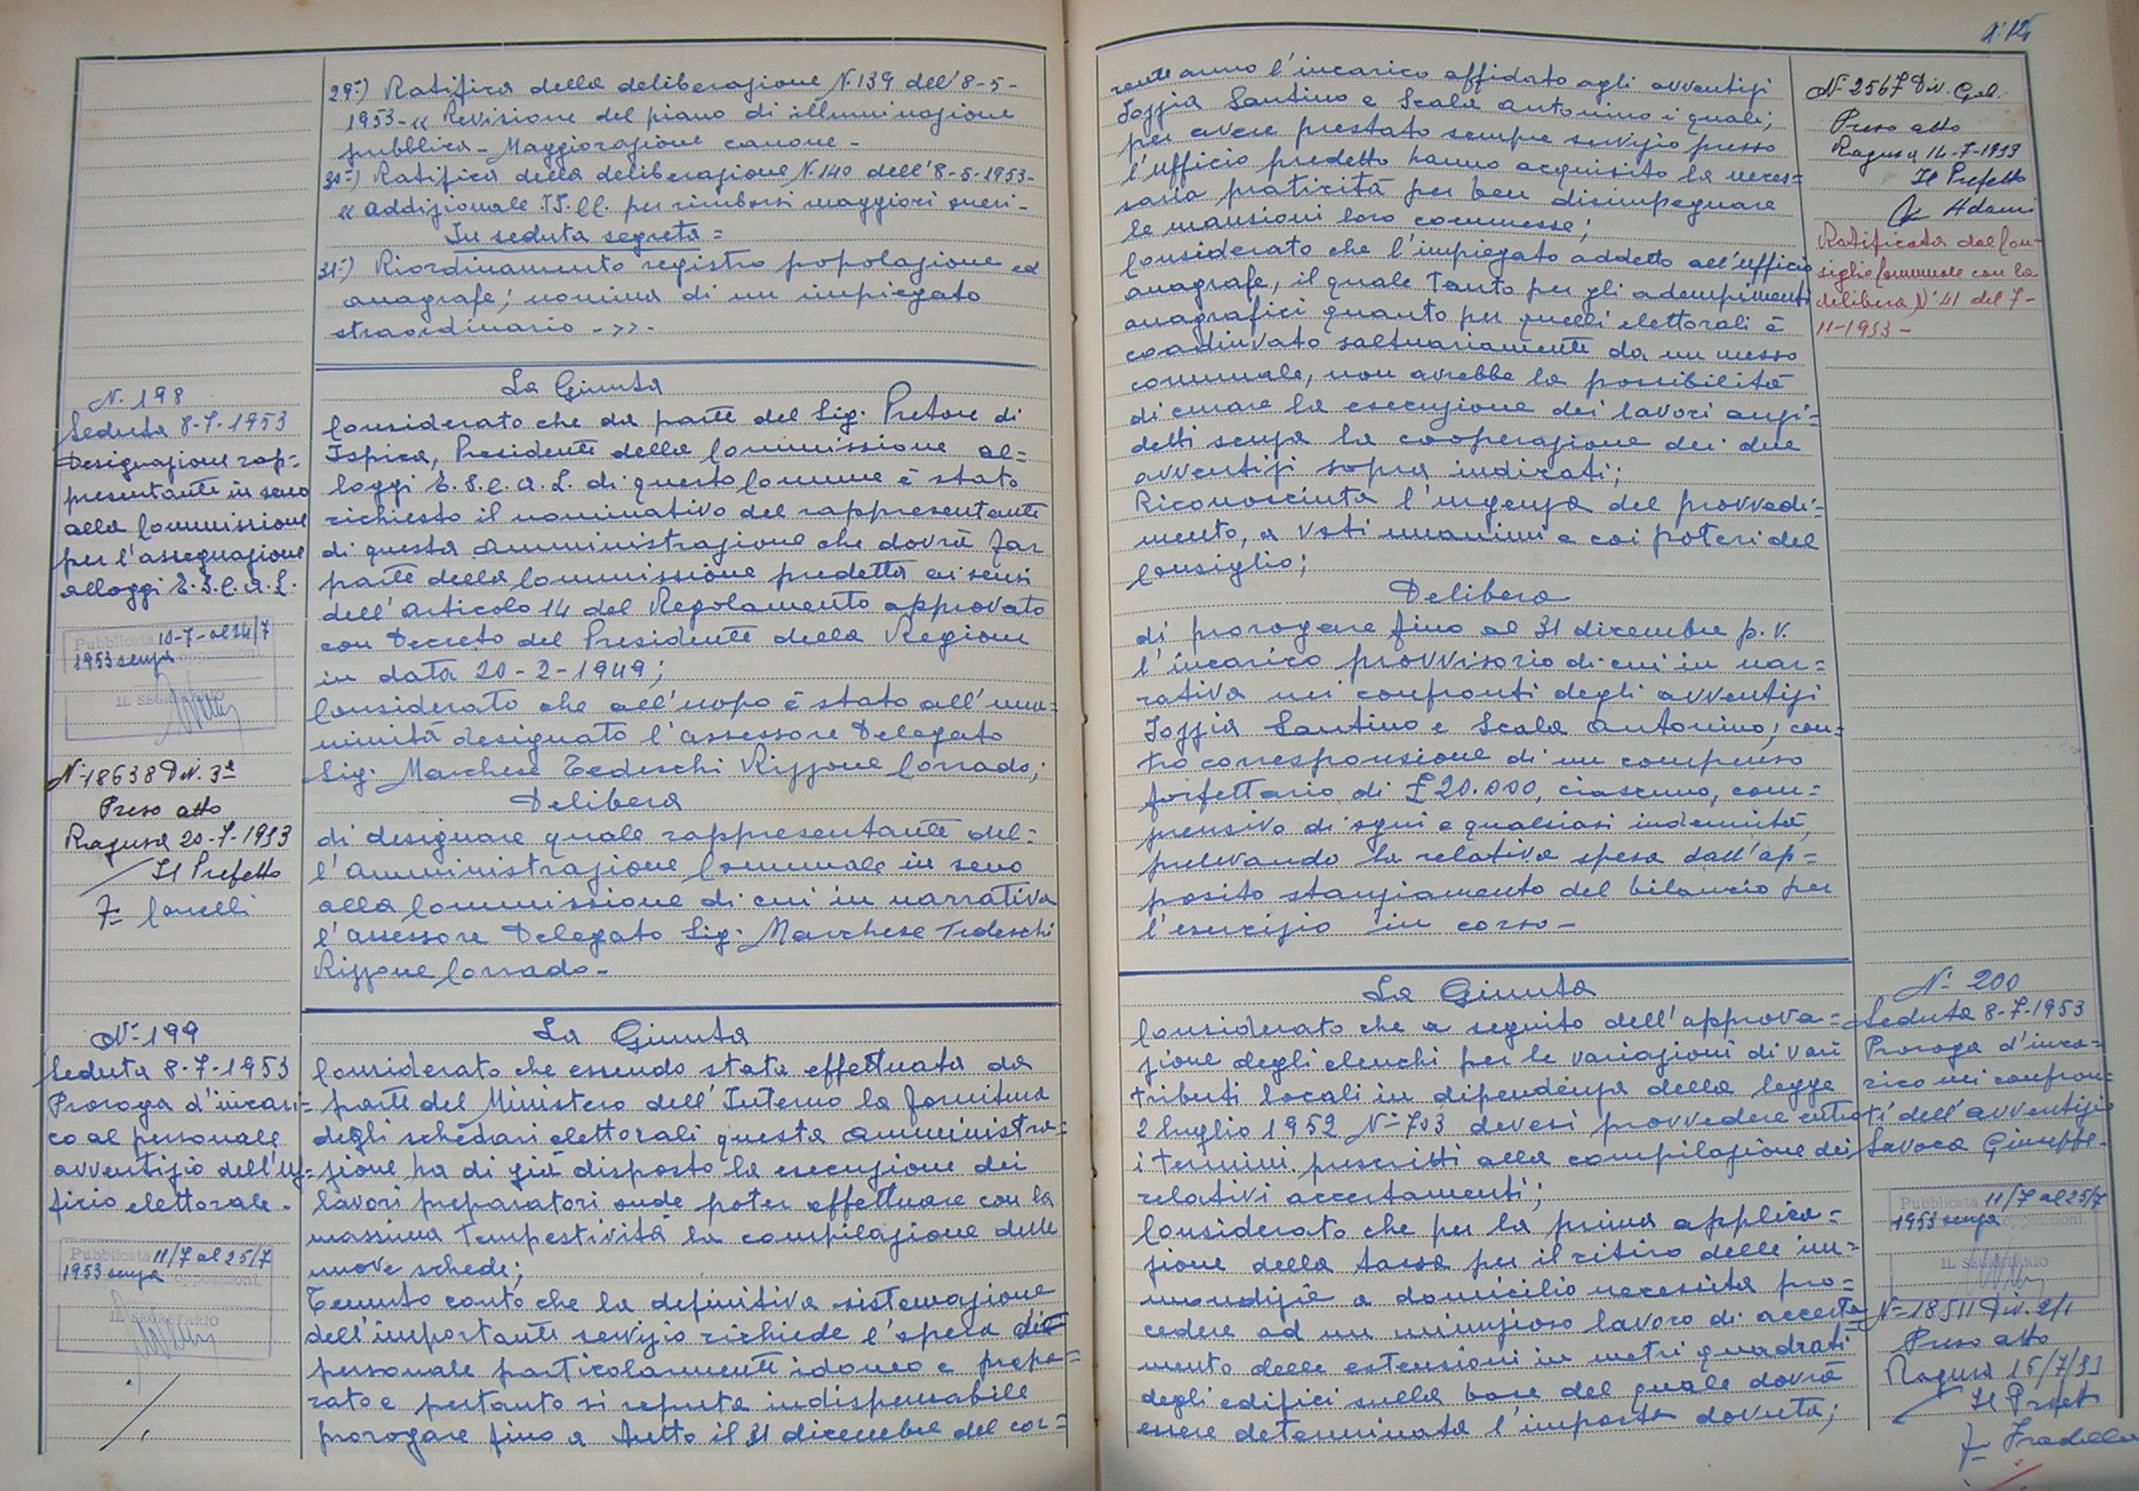 29°) Ratifica della deliberazione N. 139 dell'8-5-
1953-« Revisione del piano di illuminazione
pubblica - Maggiorazione canone -
30°) Ratifica della deliberazione N. 140 dell'8-5-1953-
« Addizionale II.CC. per rimborsi maggiori oneri -
In seduta segreta =
31°) Riordinamento registro popolazione ed
anagrafe; nomina di un impiegato
straordinario - »-
N. 198
Seduta 8-7-1953
Designazione rap-
presentante in seno
alla Commissione
per l'assegnazione
alloggi E.S.C.A.L.
Pubblicata 10-7- al 24/7
1953 senza opposizioni
IL SEGRETARIO
N° 18638 Div. 3ª
Preso atto
Ragusa 20-7-1953
Il Prefetto
La Giunta
Considerato che da parte del Sig. Pretore di
Ispica, Presidente della Commissione al=
loggi E.S.C.A.L. di questo Comune è stato
richiesto il nominativo del rappresentante
di questa Amministrazione che dovrà far
parte della Commissione predetta ai sensi
dell'articolo 14 del Regolamento approvato
con Decreto del Presidente della Regione
in data 20-2-1949;
Considerato che all'uopo è stato all'una-
nimità designato l'assessore Delegato
Sig. Marchese Tedeschi Rizzone Corrado;
Delibera
di designare quale rappresentante del=
l'Amministrazione Comunale in seno
alla Commissione di cui in narrativa
l'assessore Delegato Sig. Marchese Tedeschi
Rizzone Corrado -
N° 199
Seduta 8-7-1953
Proroga d'incari=
co al personale
avventizio dell'uf=
ficio elettorale -
Pubblicata 11/7 al 25/7
1953 senza opposizioni
IL SEGRETARIO
La Giunta
Considerato che essendo stata effettuata da
parte del Ministero dell'Interno la fornitura
degli schedari elettorali questa Amministra=
zione ha di già disposto la esecuzione dei
lavori preparatori onde poter effettuare con la
massima tempestività la compilazione delle
nuove schede;
Tenuto conto che la definitiva sistemazione
dell'importante servizio richiede l'opera di
personale particolarmente idoneo e prepa=
rato e pertanto si reputa indispensabile
prorogare fino a tutto il 31 dicembre del cor=
rente anno l'incarico affidato agli avventizi
Iozzia Santino e Scala Antonino i quali,
per avere prestato sempre servizio presso
l'ufficio predetto hanno acquisito la neces=
saria praticità per ben disimpegnare
le mansioni loro commesse;
Considerato che l'impiegato addetto all'ufficio
anagrafe, il quale tanto per gli adempimenti
anagrafici quanto per quelli elettorali è
coadiuvato saltuariamente da un messo
comunale, non avrebbe la possibilità
di curare la esecuzione dei lavori anzi=
detti senza la cooperazione dei due
avventizi sopra indicati;
Riconosciuta l'urgenza del provvedi=
mento, a voti unanimi e coi poteri del
Consiglio;
Delibera
di prorogare fino al 31 dicembre p.v.
l'incarico provvisorio di cui in nar=
rativa nei confronti degli avventizi
Iozzia Santino e Scala Antonino, con=
tro corresponsione di un compenso
forfettario di £ 20.000, ciascuno, com=
prensivo di ogni e qualsiasi indennità,
prelevando la relativa spesa dall'ap=
posito stanziamento del bilancio per
l'esercizio in corso -
N° 2567 Div. Gab.
Preso atto
Ragusa 14-7-1953
Il Prefetto
Ratificata dal Con-
siglio Comunale con la
delibera N° 41 del 7-
11-1953 -
La Giunta
Considerato che a seguito dell'approva=
zione degli elenchi per le variazioni di vari
tributi locali in dipendenza della legge
2 luglio 1952 N° 703 devesi provvedere entro
i termini prescritti alla compilazione dei
relativi accertamenti;
Considerato che per la prima applica=
zione della tassa per il ritiro delle im=
mondizie a domicilio necessita pro=
cedere ad un minuzioso lavoro di accerta=
mento delle estensioni in metri quadrati
degli edifici sulla base del quale dovrà
essere determinata l'imposta dovuta;
N° 200
Seduta 8-7-1953
Proroga d'inca=
rico nei confron=
ti dell'avventizio
Savoca Giuseppe -
Pubblicata 11/7 al 25/7
1953 senza opposizioni
IL SEGRETARIO
N° 18511 Div. 2/1
Preso atto
Ragusa 15/7/53
Il Prefetto